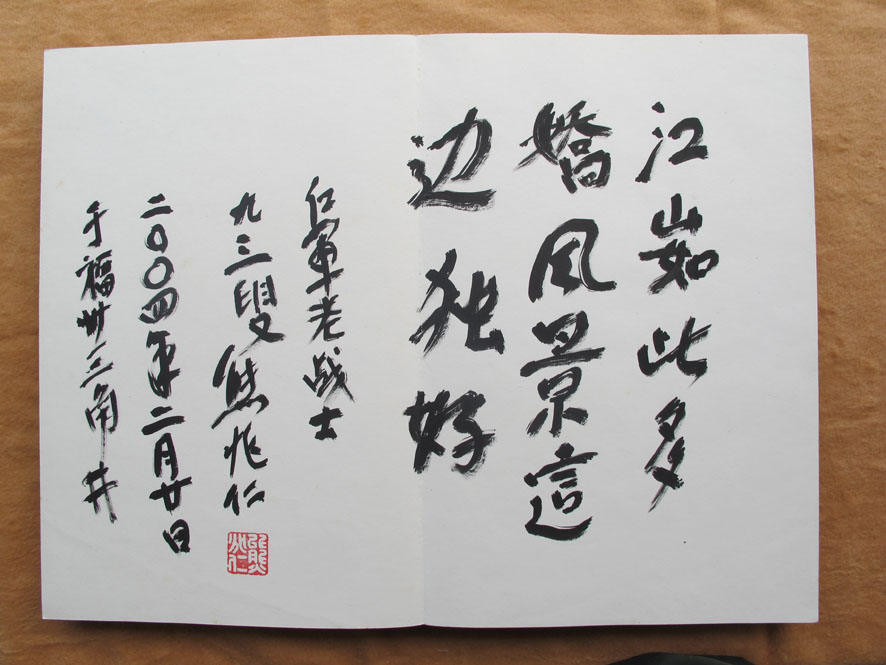 江山如此多
嬌风景這
边独好
红軍老战士
九三叟熊兆仁
二〇〇四年二月廿日
于福州三角井
熊兆仁